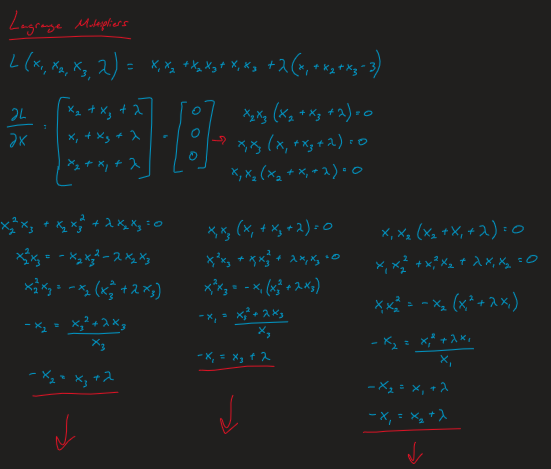 Lagrange Multipliers
L(x₁, x₂, x₃, λ) = x₁x₂ + x₂x₃ + x₁x₃ + λ(x₁ + x₂ + x₃ - 3)
∂L/∂X = [x₂ + x₃ + λ; x₁ + x₃ + λ; x₂ + x₁ + λ] = [0; 0; 0] →
x₂x₃(x₂ + x₃ + λ) = 0
x₁x₃(x₁ + x₃ + λ) = 0
x₁x₂(x₂ + x₁ + λ) = 0
x₂²x₃ + x₂x₃² + λx₂x₃ = 0
x₂²x₃ = -x₂x₃² - λx₂x₃
x₂²x₃ = -x₂(x₃² + λx₃)
-x₂ = (x₃² + λx₃)/x₃
-x₂ = x₃ + λ
x₁x₃(x₁ + x₃ + λ) = 0
x₁²x₃ + x₁x₃² + λx₁x₃ = 0
x₁²x₃ = -x₁(x₃² + λx₃)
-x₁ = (x₃² + λx₃)/x₃
-x₁ = x₃ + λ
x₁x₂(x₂ + x₁ + λ) = 0
x₁x₂² + x₁²x₂ + λx₁x₂ = 0
x₁x₂² = -x₂(x₁² + λx₁)
-x₂ = (x₁² + λx₁)/x₁
-x₂ = x₁ + λ
-x₁ = x₂ + λ